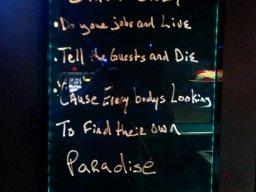 • Do your jobs and Live
• Tell the Guests and Die
• 'Cause Every bodys Looking
To Find their own
Paradise